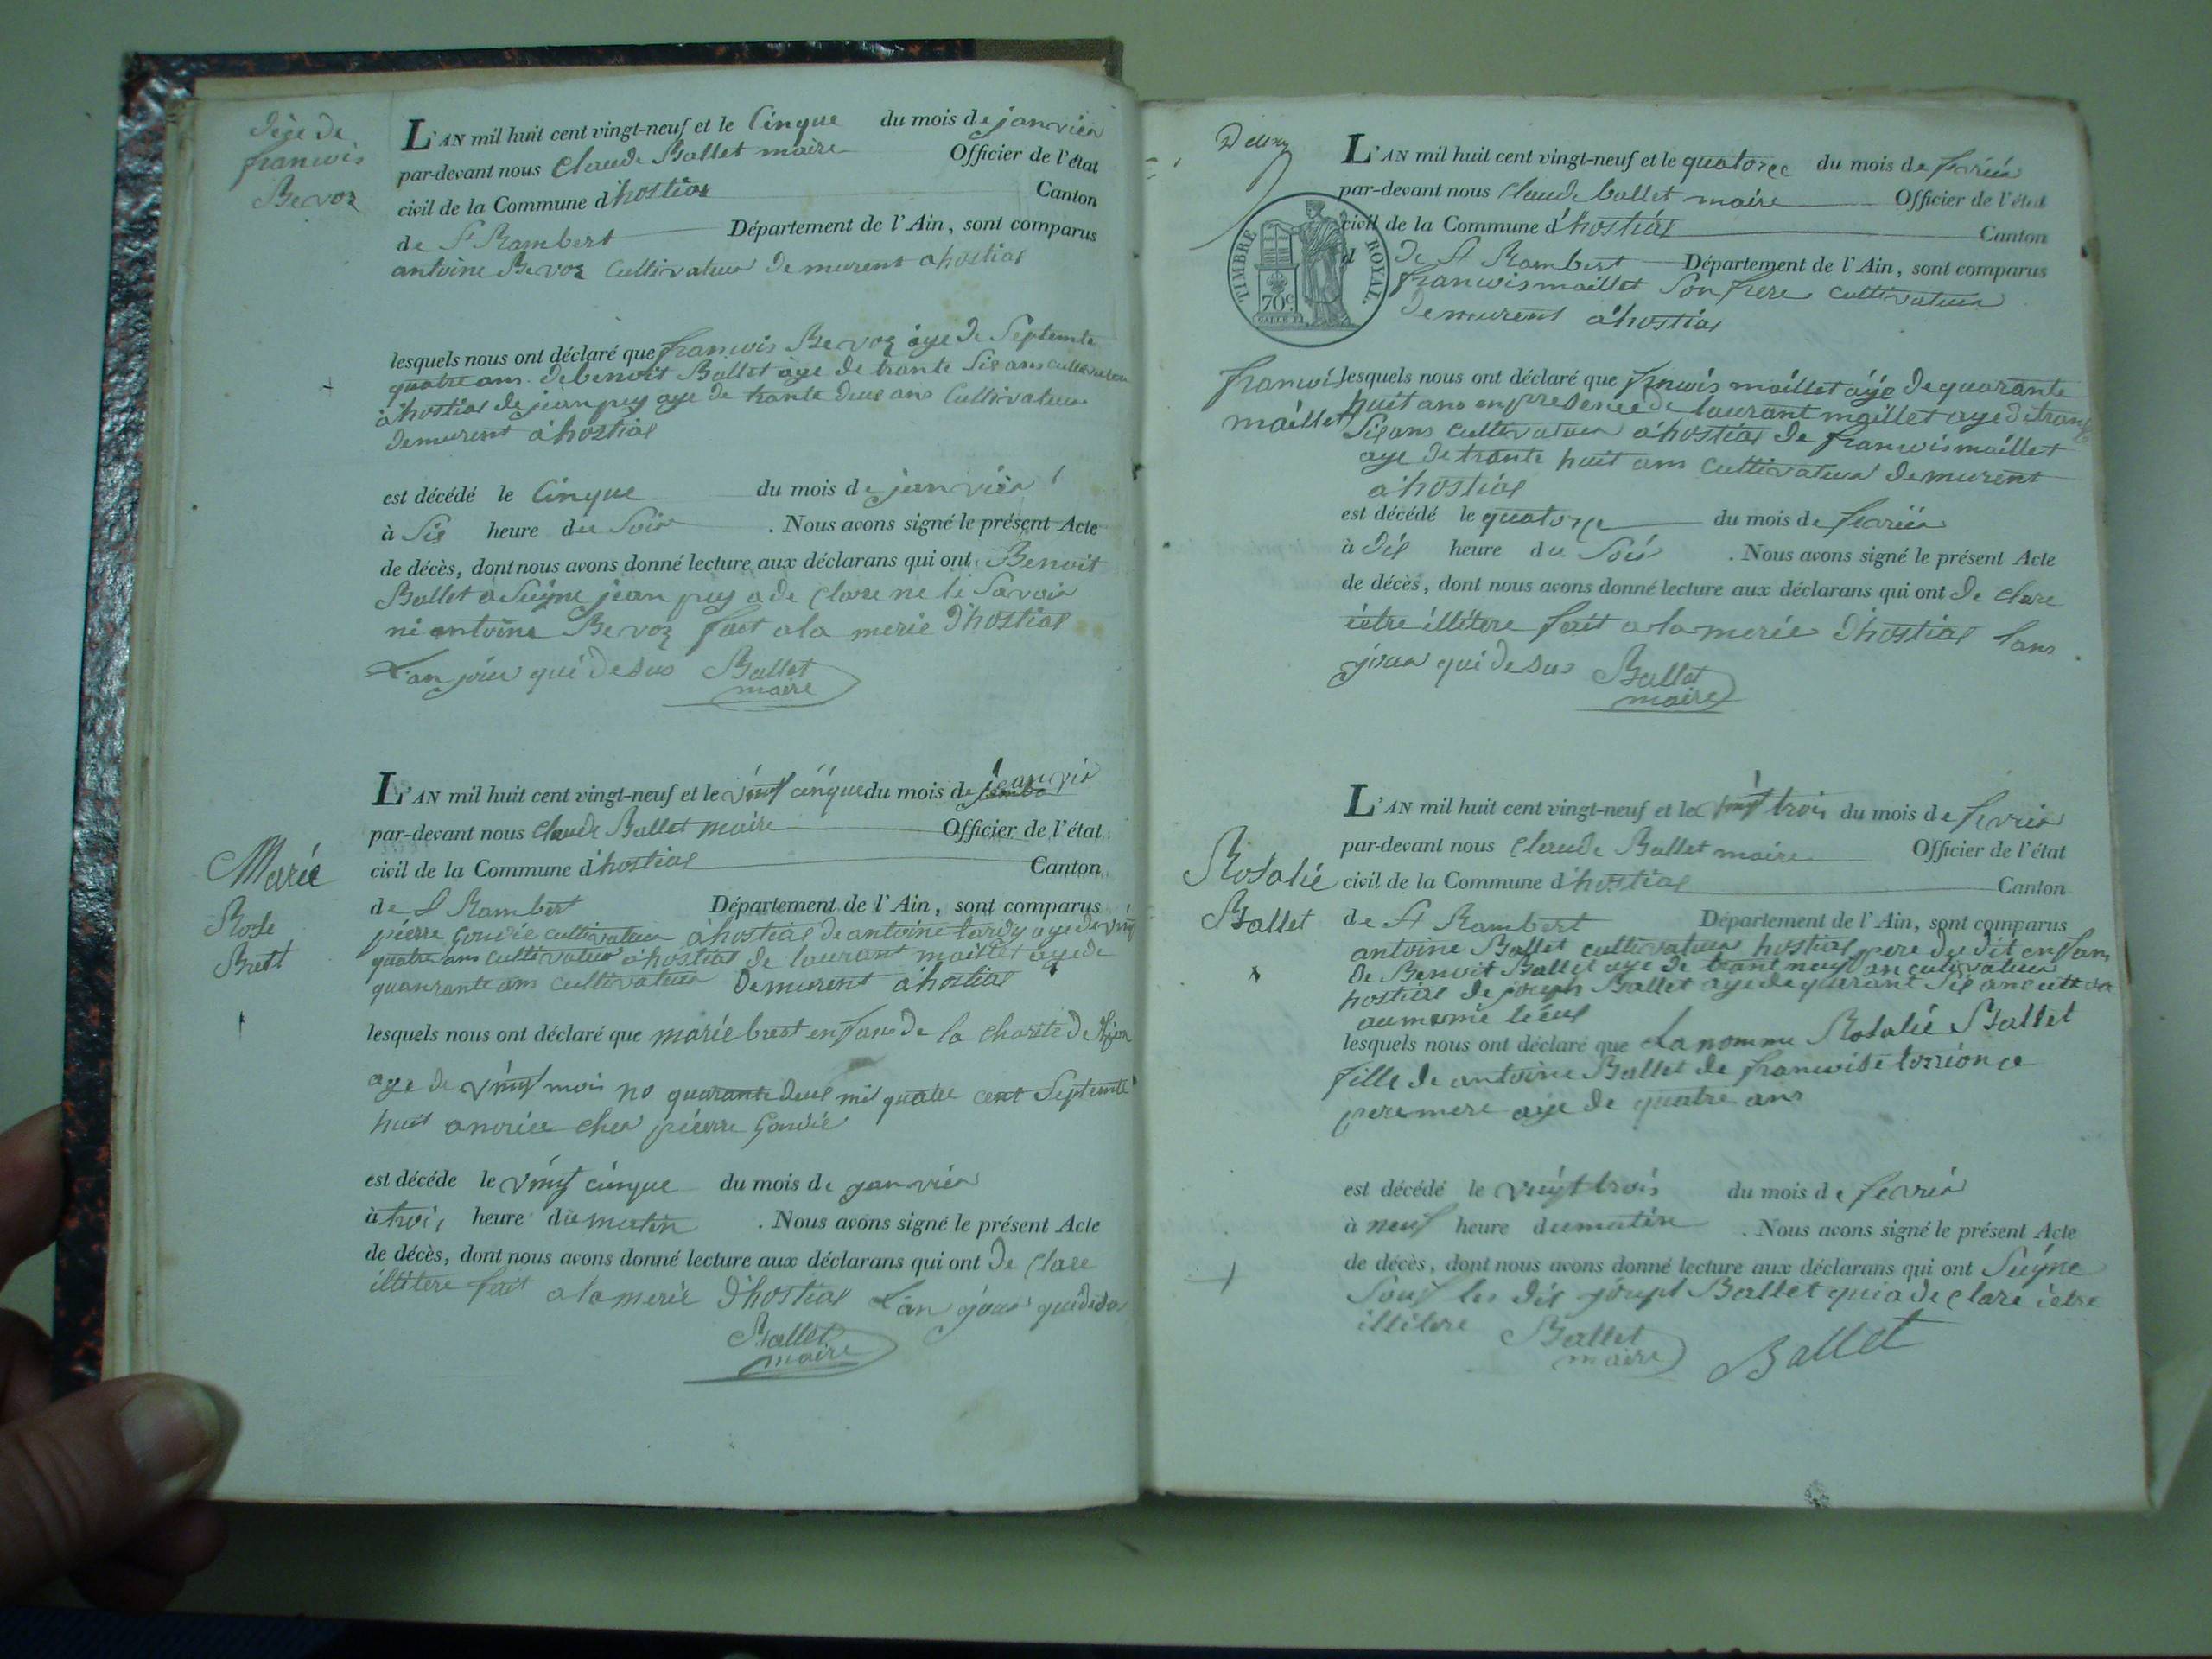 dèse de
francois
Bevoz
L'AN mil huit cent vingt-neuf et le Cinque du mois de janvier
par-devant nous Claude Ballet maire Officier de l'état
civil de la Commune d'hostias Canton
de St Rambert Département de l'Ain, sont comparus
antoine Bevoz Cultivateur demurent a hostias
lesquels nous ont déclaré que francois Bevoz aye de Septente
quatre ans de benoit Ballet aye de trante Sis ans cultivateur
a hostias de jean puy aye de trante deus ans Cultivateur
demurent a hostias
est décédé le Cinque du mois de janvier
à Sis heure du Soir . Nous avons signé le présent Acte
de décès, dont nous avons donné lecture aux déclarans qui ont Benoit
Ballet a Suigne jean puy a de clare ne le Savoir
ni antoine Bevoz fait a la merie d'hostias
L'an jour qui desus Ballet
maire
Marie
Rose
Brett
L'AN mil huit cent vingt-neuf et le vingt cinque du mois de janvier
par-devant nous Claude Ballet maire Officier de l'état
civil de la Commune d'hostias Canton
de St Rambert Département de l'Ain, sont comparus
pierre goudie cultivateur a hostias de antoine tardy aye de vingt
quatre ans cultivateur a hostias de laurant maillet aye de
quanrante ans cultivateur demurent a hostias
lesquels nous ont déclaré que marie brest enfans de la charite de
aye de vingt mois no quarante deus mil quatre cent Septente
huit a noriée ches piérre goudié
est décédé le vingt cinque du mois de janvier
à trois heure du matin . Nous avons signé le présent Acte
de décès, dont nous avons donné lecture aux déclarans qui ont de clare
illitere fait a la merie d'hostias L'an jour qui desus
Ballet
maire
TIMBRE ROYAL.
70c.
francois
maillet
L'AN mil huit cent vingt-neuf et le quatorce du mois de fevrier
par-devant nous Claude ballet maire Officier de l'état
civil de la Commune d'hostias Canton
d de St Rambert Département de l'Ain, sont comparus
francois maillet Son frere cultivateur
demurent a hostias
lesquels nous ont déclaré que francois maillet aye de quarante
huit ans en presence de laurant maillet aye de trante
Sis ans cultivateur a hostias de francois maillet
aye de trante huit ans cultivateur demurent
a hostias
est décédé le quatorse du mois de fevrier
à dis heure du Soir . Nous avons signé le présent Acte
de décès, dont nous avons donné lecture aux déclarans qui ont de clare
être illitere fait a la merie d'hostias l'an
jour qui desus Ballet
maire
Rosalie
Ballet
L'AN mil huit cent vingt-neuf et le vingt trois du mois de fevrier
par-devant nous Claude Ballet maire Officier de l'état
civil de la Commune d'hostias Canton
de St Rambert Département de l'Ain, sont comparus
antoine Ballet cultivateur hostias pere du dit enfans
de Benoit Ballet aye de trant neuf an cultivateur
hostias de joseph Ballet aye de quarant Sis ans
au meme lieus
lesquels nous ont déclaré que La nommé Rosalie Ballet
fille de antoine Ballet de francoise
pere mere aye de quatre ans
est décédé le vingt trois du mois de fevrier
à neuf heure du matin . Nous avons signé le présent Acte
de décès, dont nous avons donné lecture aux déclarans qui ont Suigne
Souf les dis Ballet qui a de clare être
illitere Ballet
maire Ballet